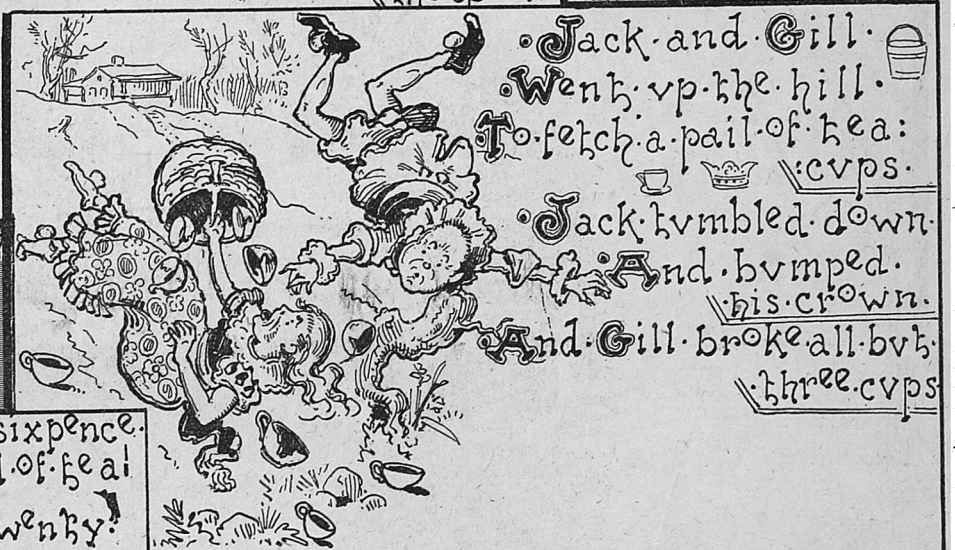 ·Jack·and·Gill·
·Went·vp·the·hill·
To·fetch·a·pail·of·tea:
:cvps·
·Jack·tvmbled·down·
·And·bvmped·
·his·crown·
·And·Gill·broke·all·bvt·
·three·cvps
sixpence·
·of·tea!